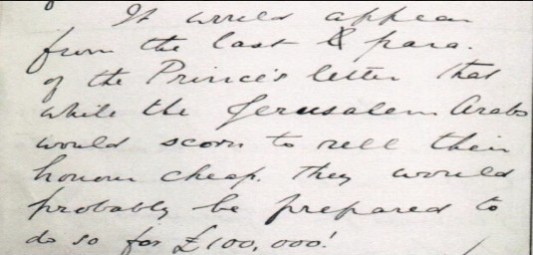 It would appear
from the last & para.
of the Prince's letter that
while the Jerusalem Arabs
would scorn to sell their
honour cheap. They would
probably be prepared to
do so for £100,000!